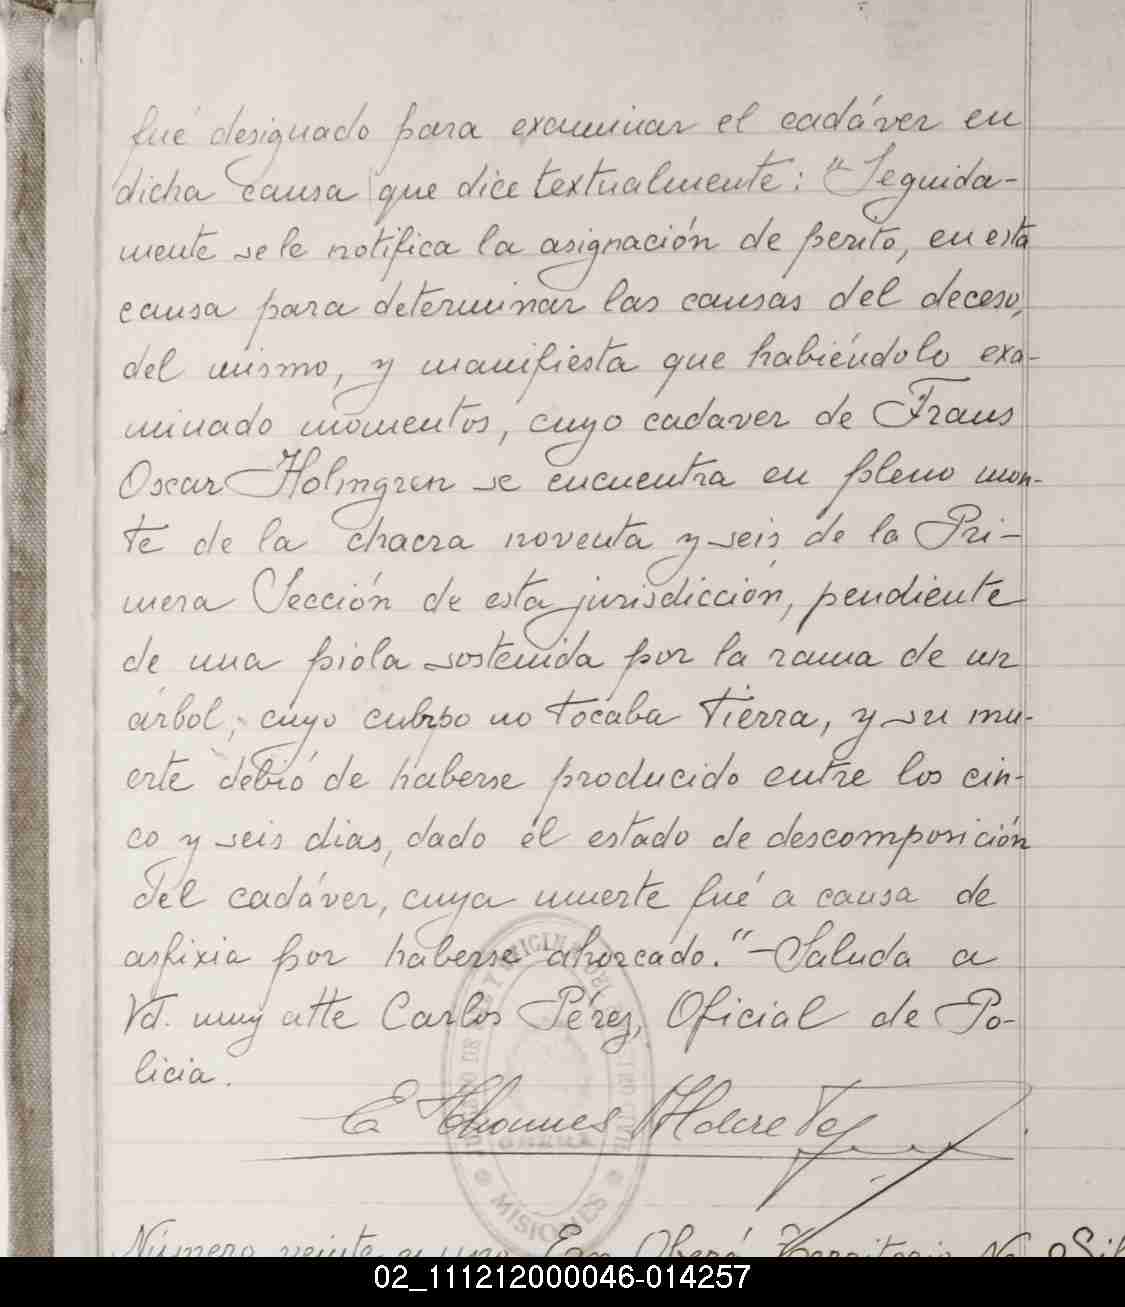 fué designado para examinar el cadáver en
dicha causa que dice textualmente: "Seguida-
mente se le notifica la asignación de perito, en esta
causa para determinar las causas del deceso,
del mismo, y manifiesta que habiéndolo exa-
minado momentos, cuyo cadaver de Frans
Oscar Holmgren se encuentra en pleno mon-
te de la chacra noventa y seis de la Pri-
mera Sección de esta jurisdicción, pendiente
de una piola sostenida por la rama de un
árbol, cuyo cuerpo no tocaba tierra, y su mu-
erte debió de haberse producido entre los cin-
co y seis dias, dado el estado de descomposición
del cadáver, cuya muerte fué a causa de
asfixia por haberse ahorcado."-Saluda a
Vd. muy atte Carlos Pérez, Oficial de Po-
licia.
E Thomes Alderete
MISIONES
Número veinte y uno En Oberá Territorio
02_111212000046-014257